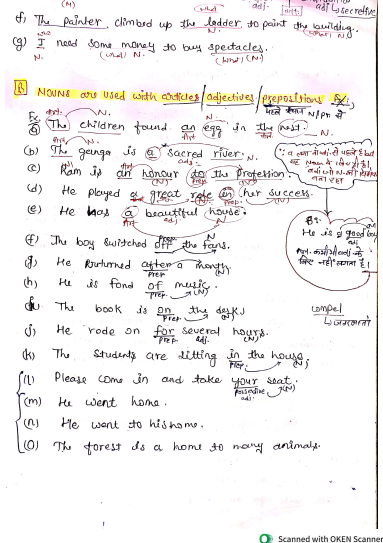 (N) (what) adj. art. adj ↳ secretive
f) The painter climbed up the ladder to paint the building.
N. N. (what) N.
(g) I need some money to buy spectacles.
N. (what) N. (what) (N)
B NOUNS are used with articles/adjectives/prepositions. Ex;
Ex. Art. N. N.
(a) The children found an egg in the nest.
Art. N.
(b) The ganga is a sacred river.
Art adj. N.
(c) Ram is an honour to the profession.
(N) (Prep) (N)
(d) He played a great role in her success.
(N) (N)
(e) He has a beautiful house.
Art adj N
Ex:
He is a good
adj
(f) The boy switched off the fans.
Prep. (N)
(g) He returned after a month.
prep. (N)
(h) He is fond of music.
prep. (N)
The book is on the desk.
Prep. (N)
compel
(j) He rode on for several hours.
prep. adj. (N)
(k) The students are sitting in the house.
prep. (N)
(l) Please come in and take your seat.
possessive adj. (N)
(m) He went home.
(n) He went to his home.
(o) The forest is a home to many animals.
Scanned with OKEN Scanner